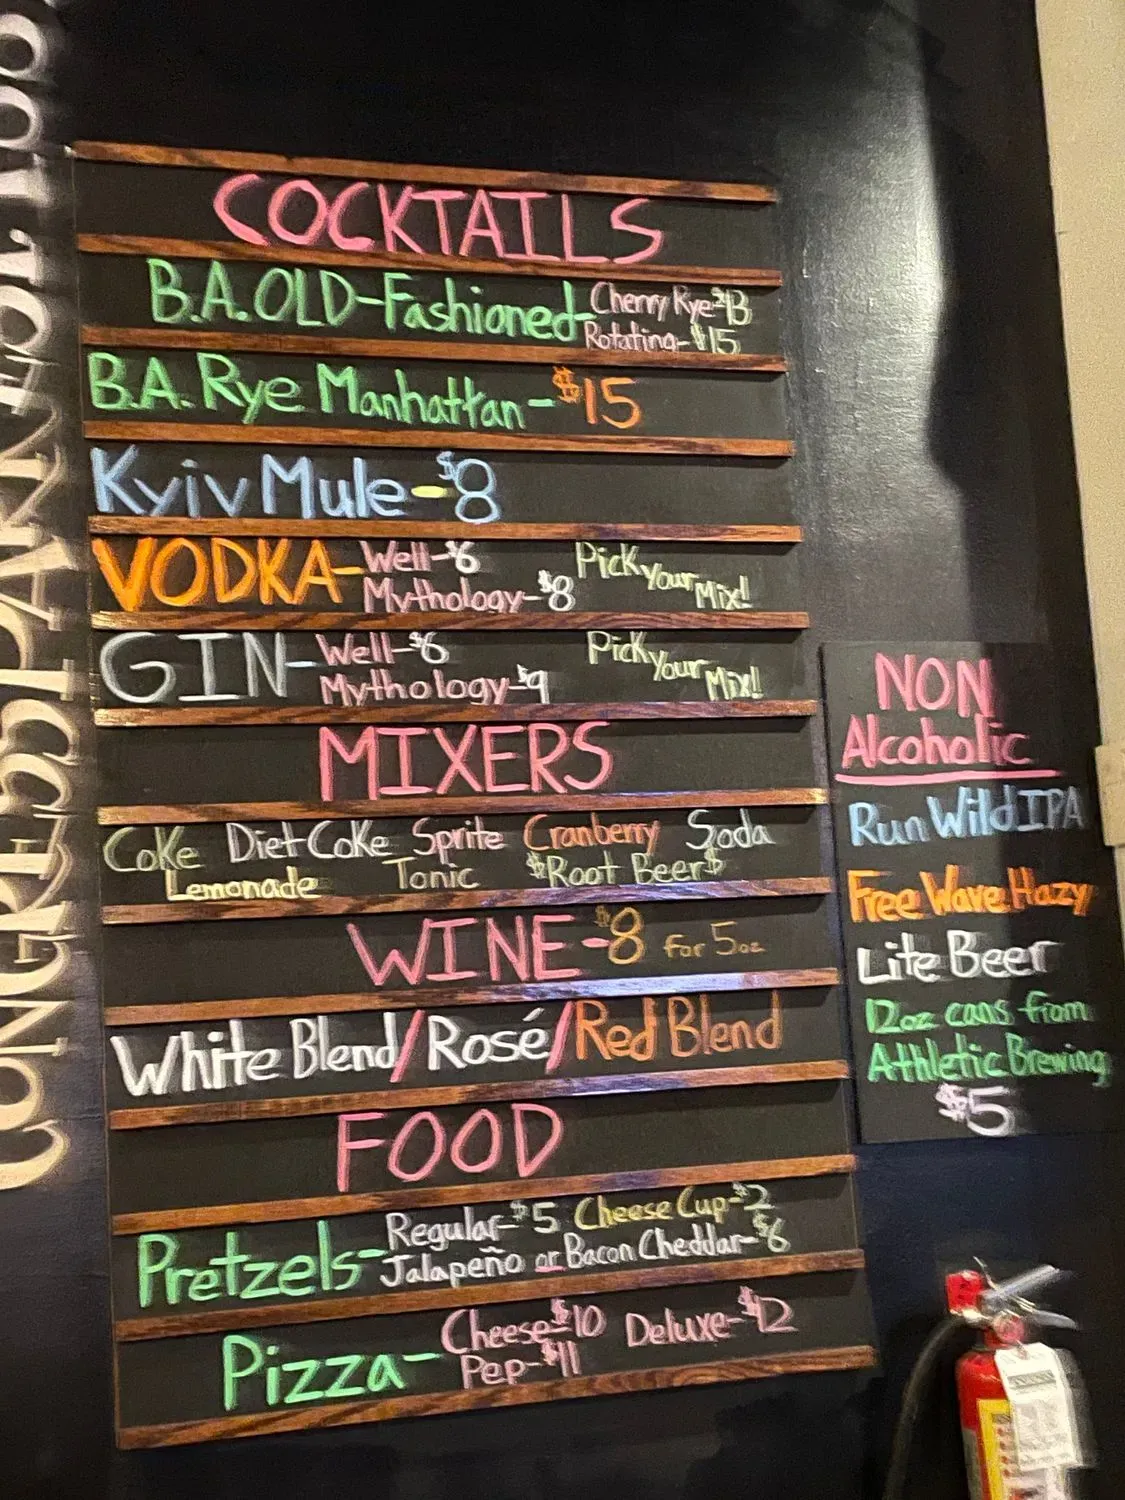 COCKTAILS
B.A. OLD-Fashioned- Cherry Rye-$13
Rotating-$15
B.A. Rye Manhattan-$15
Kyiv Mule-$8
VODKA- Well-$6 Pick your Mix!
Mythology-$8
GIN- Well-$6 Pick your Mix!
Mythology-$9
MIXERS
Coke Diet Coke Sprite Cranberry Soda
Lemonade Tonic $Root Beer$
WINE-$8 for 5oz
White Blend/Rosé/Red Blend
FOOD
Pretzels- Regular-$5 Cheese Cup-$2
Jalapeño or Bacon Cheddar-$6
Pizza- Cheese-$10 Deluxe-$12
Pep-$11
NON
Alcoholic
Run Wild IPA
Free Wave Hazy
Lite Beer
12oz cans from
Athletic Brewing
$5
CONGRESS PARK